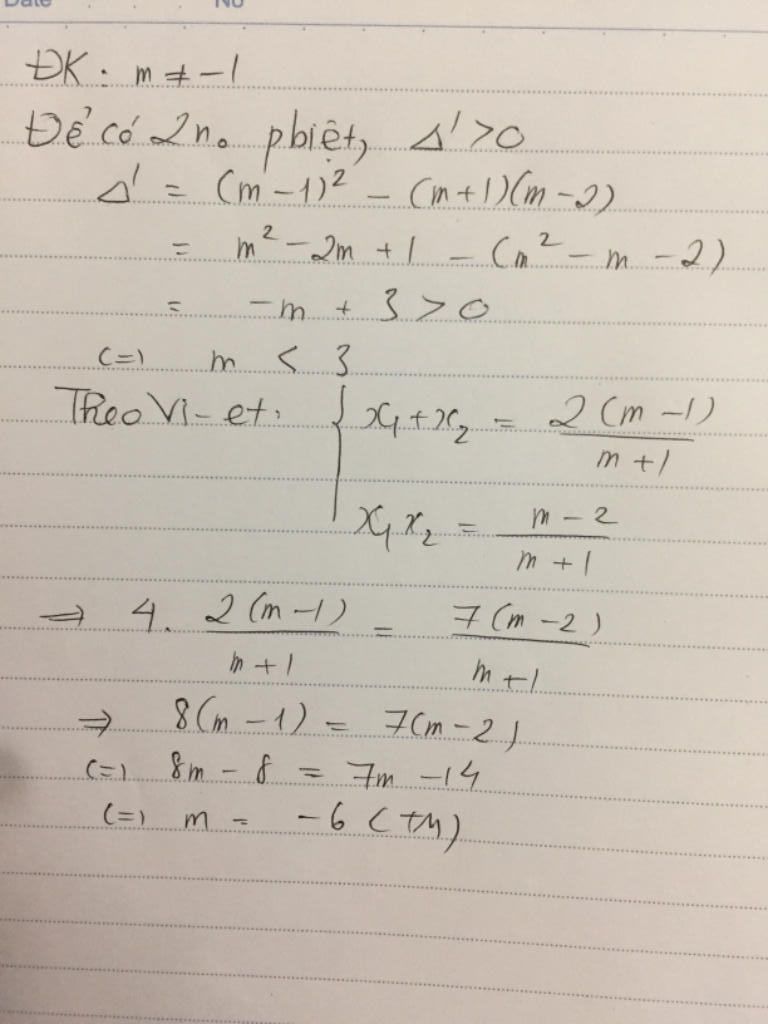 Date No
ĐK: m ≠ -1
Để có 2 no pbiệt, Δ' > 0
Δ' = (m-1)² - (m+1)(m-2)
= m² - 2m + 1 - (m² - m - 2)
= -m + 3 > 0
<=> m < 3
Theo Vi-et: { x₁ + x₂ = 2(m-1)/(m+1)
x₁x₂ = (m-2)/(m+1)
=> 4. 2(m-1)/(m+1) = 7(m-2)/(m+1)
=> 8(m-1) = 7(m-2)
<=> 8m - 8 = 7m - 14
<=> m = -6 (TM)